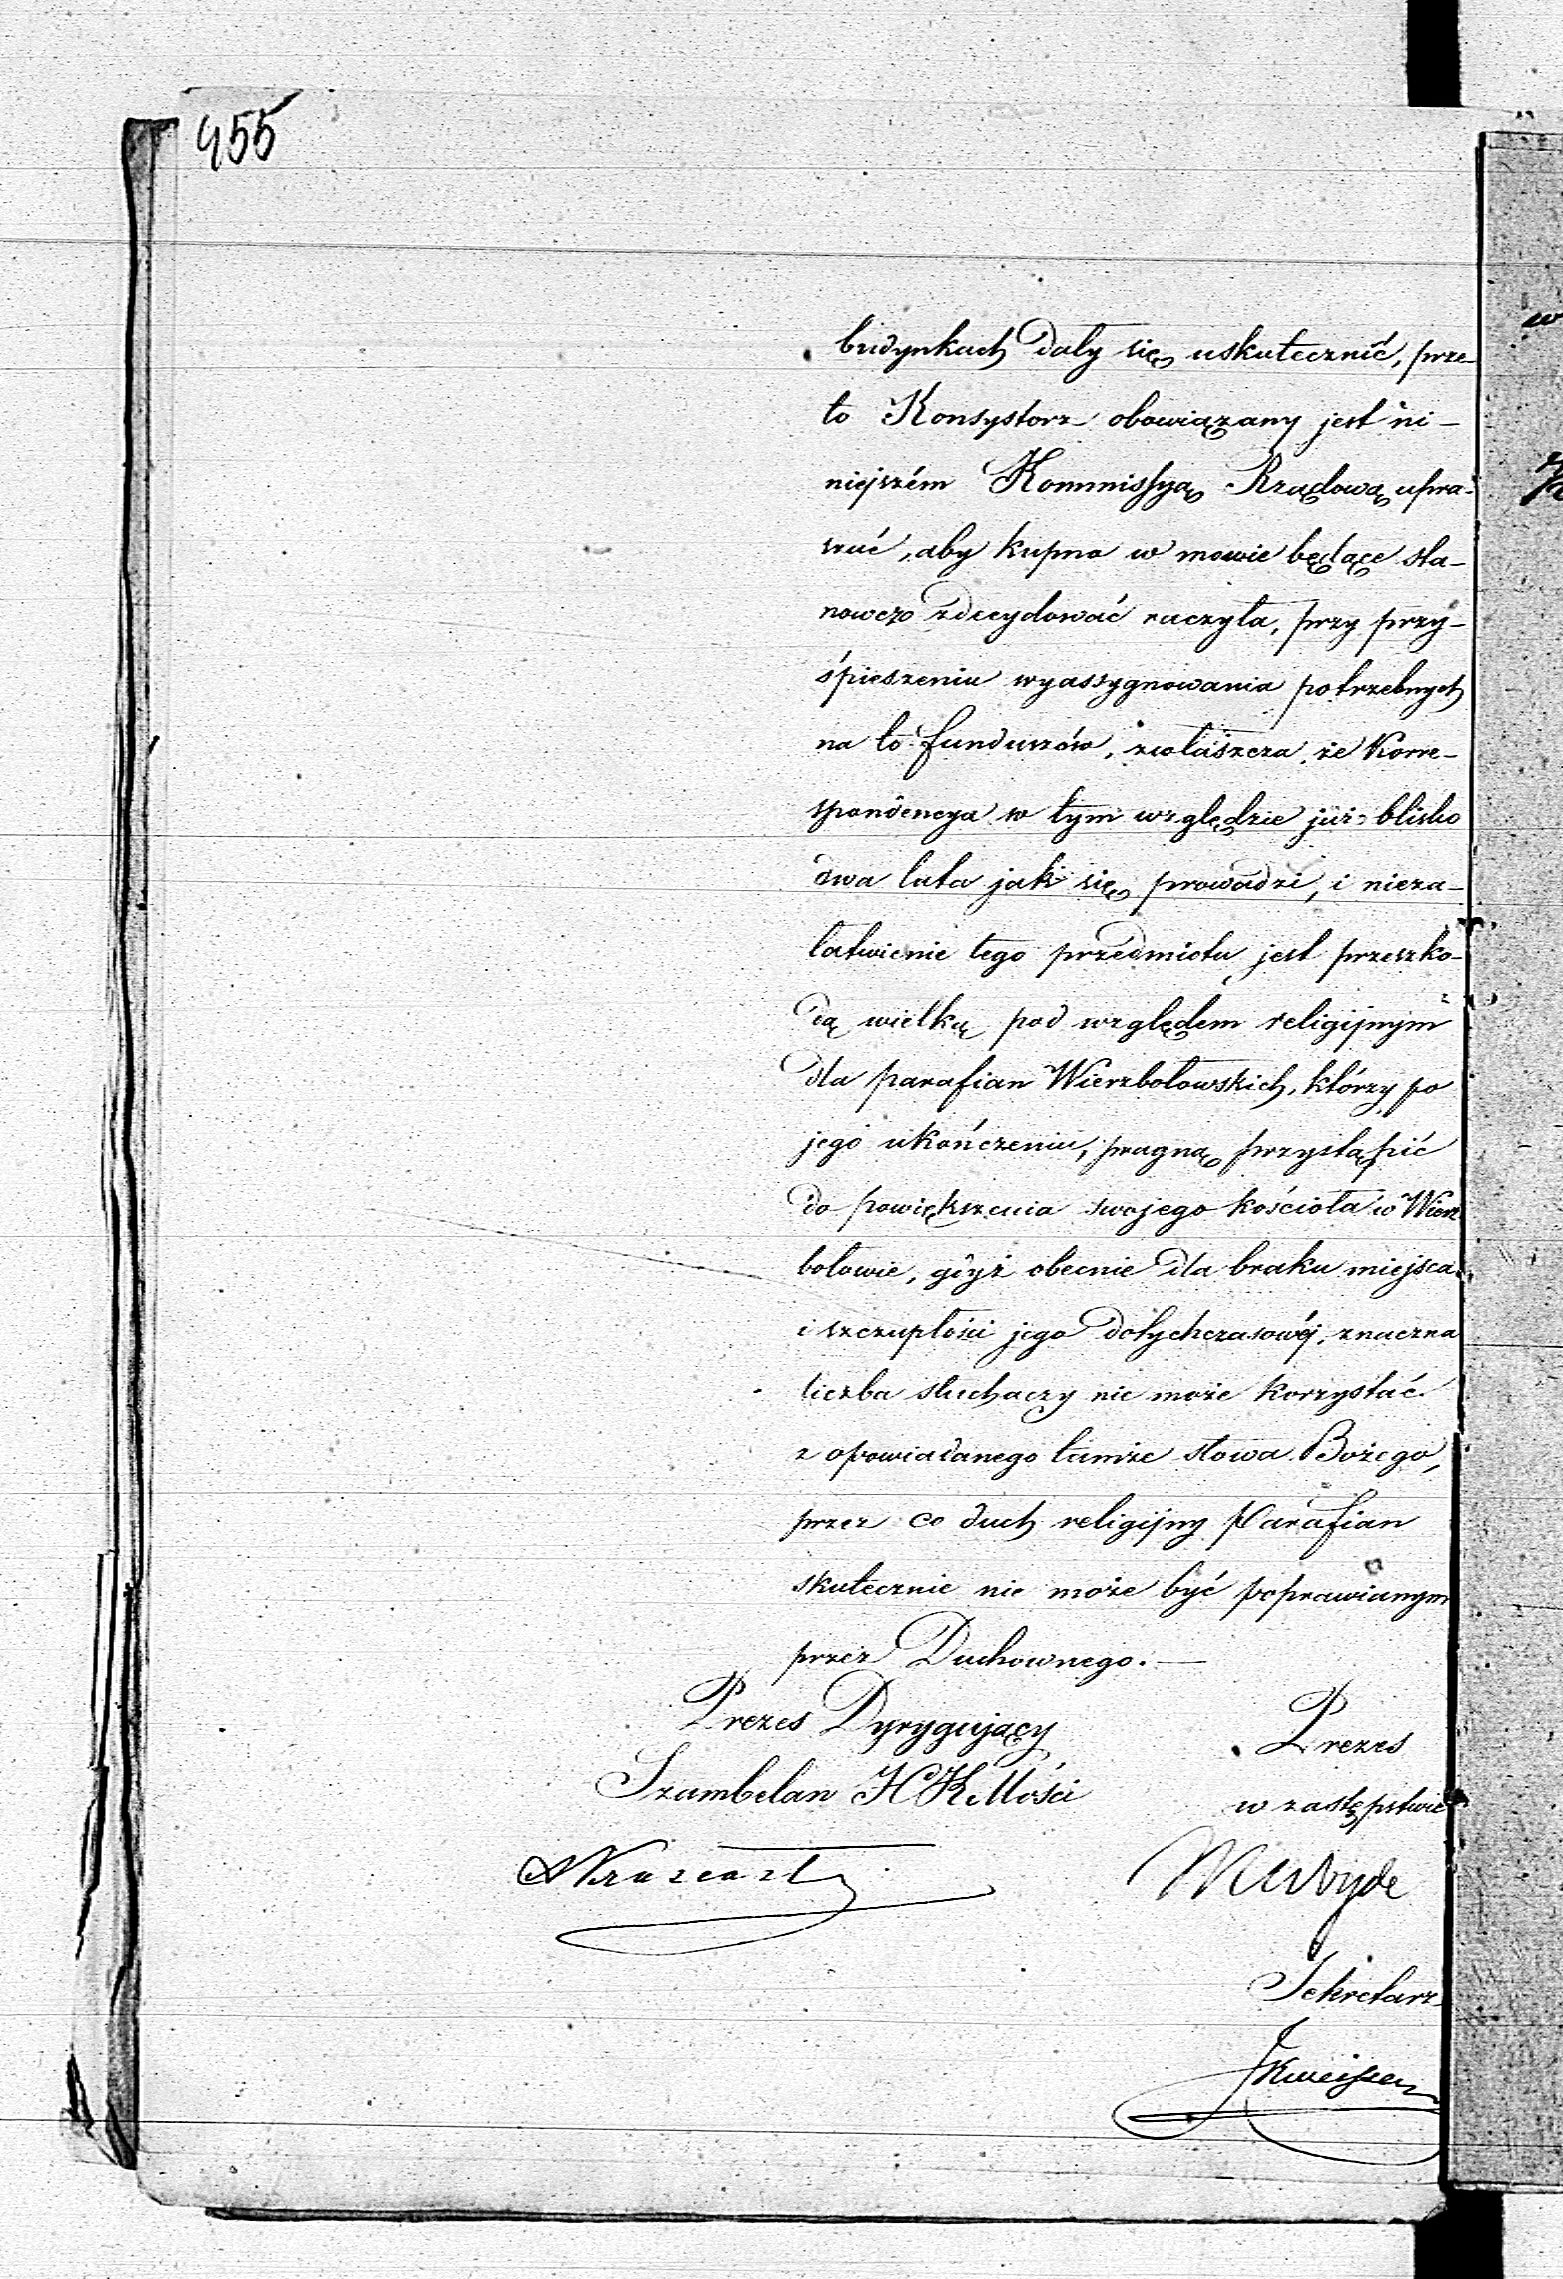 455
budynkach dały się uskutecznić, prze-
to Konsystorz obowiązany jest ni-
niejszém Kommissyą Rządową upra-
szać, aby kupno w mowie będące sta-
nowczo zdecydować raczyła, przy przy-
śpieszeniu wyassygnowania potrzebnych
na to funduszów, zwłaszcza, że Korre-
spondencya w tym względzie już blisko
dwa lata jak się prowadzi, i nieza-
łatwienie tego przedmiotu jest przeszko-
dą wielką pod względem religijnym
dla parafian Wierzbołowskich, którzy po
jego ukończeniu, pragną przystąpić
do powiększenia swojego kościoła w Wierz
bołowie, gdyż obecnie dla braku miejsca
i szczupłości jego dotychczasowéj, znaczna
liczba słuchaczy nie może korzystać
z opowiadanego tamże słowa Bożego,
przez co duch religijny Parafian
skutecznie nie może być poprawianym
przez Duchownego.—
Prezes Dyrygujący
Prezes
Szambelan JCKMości
w zastępstwie
Sekretarz